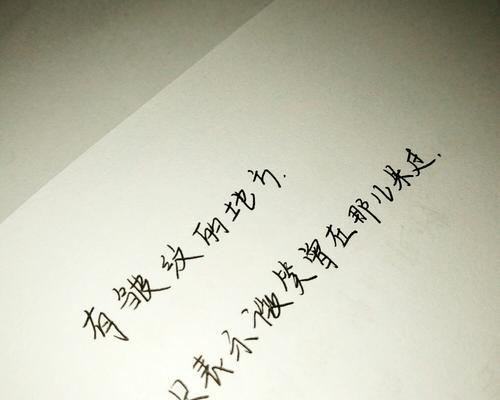 有皱纹的地方.
只表示微笑曾在那儿呆过.